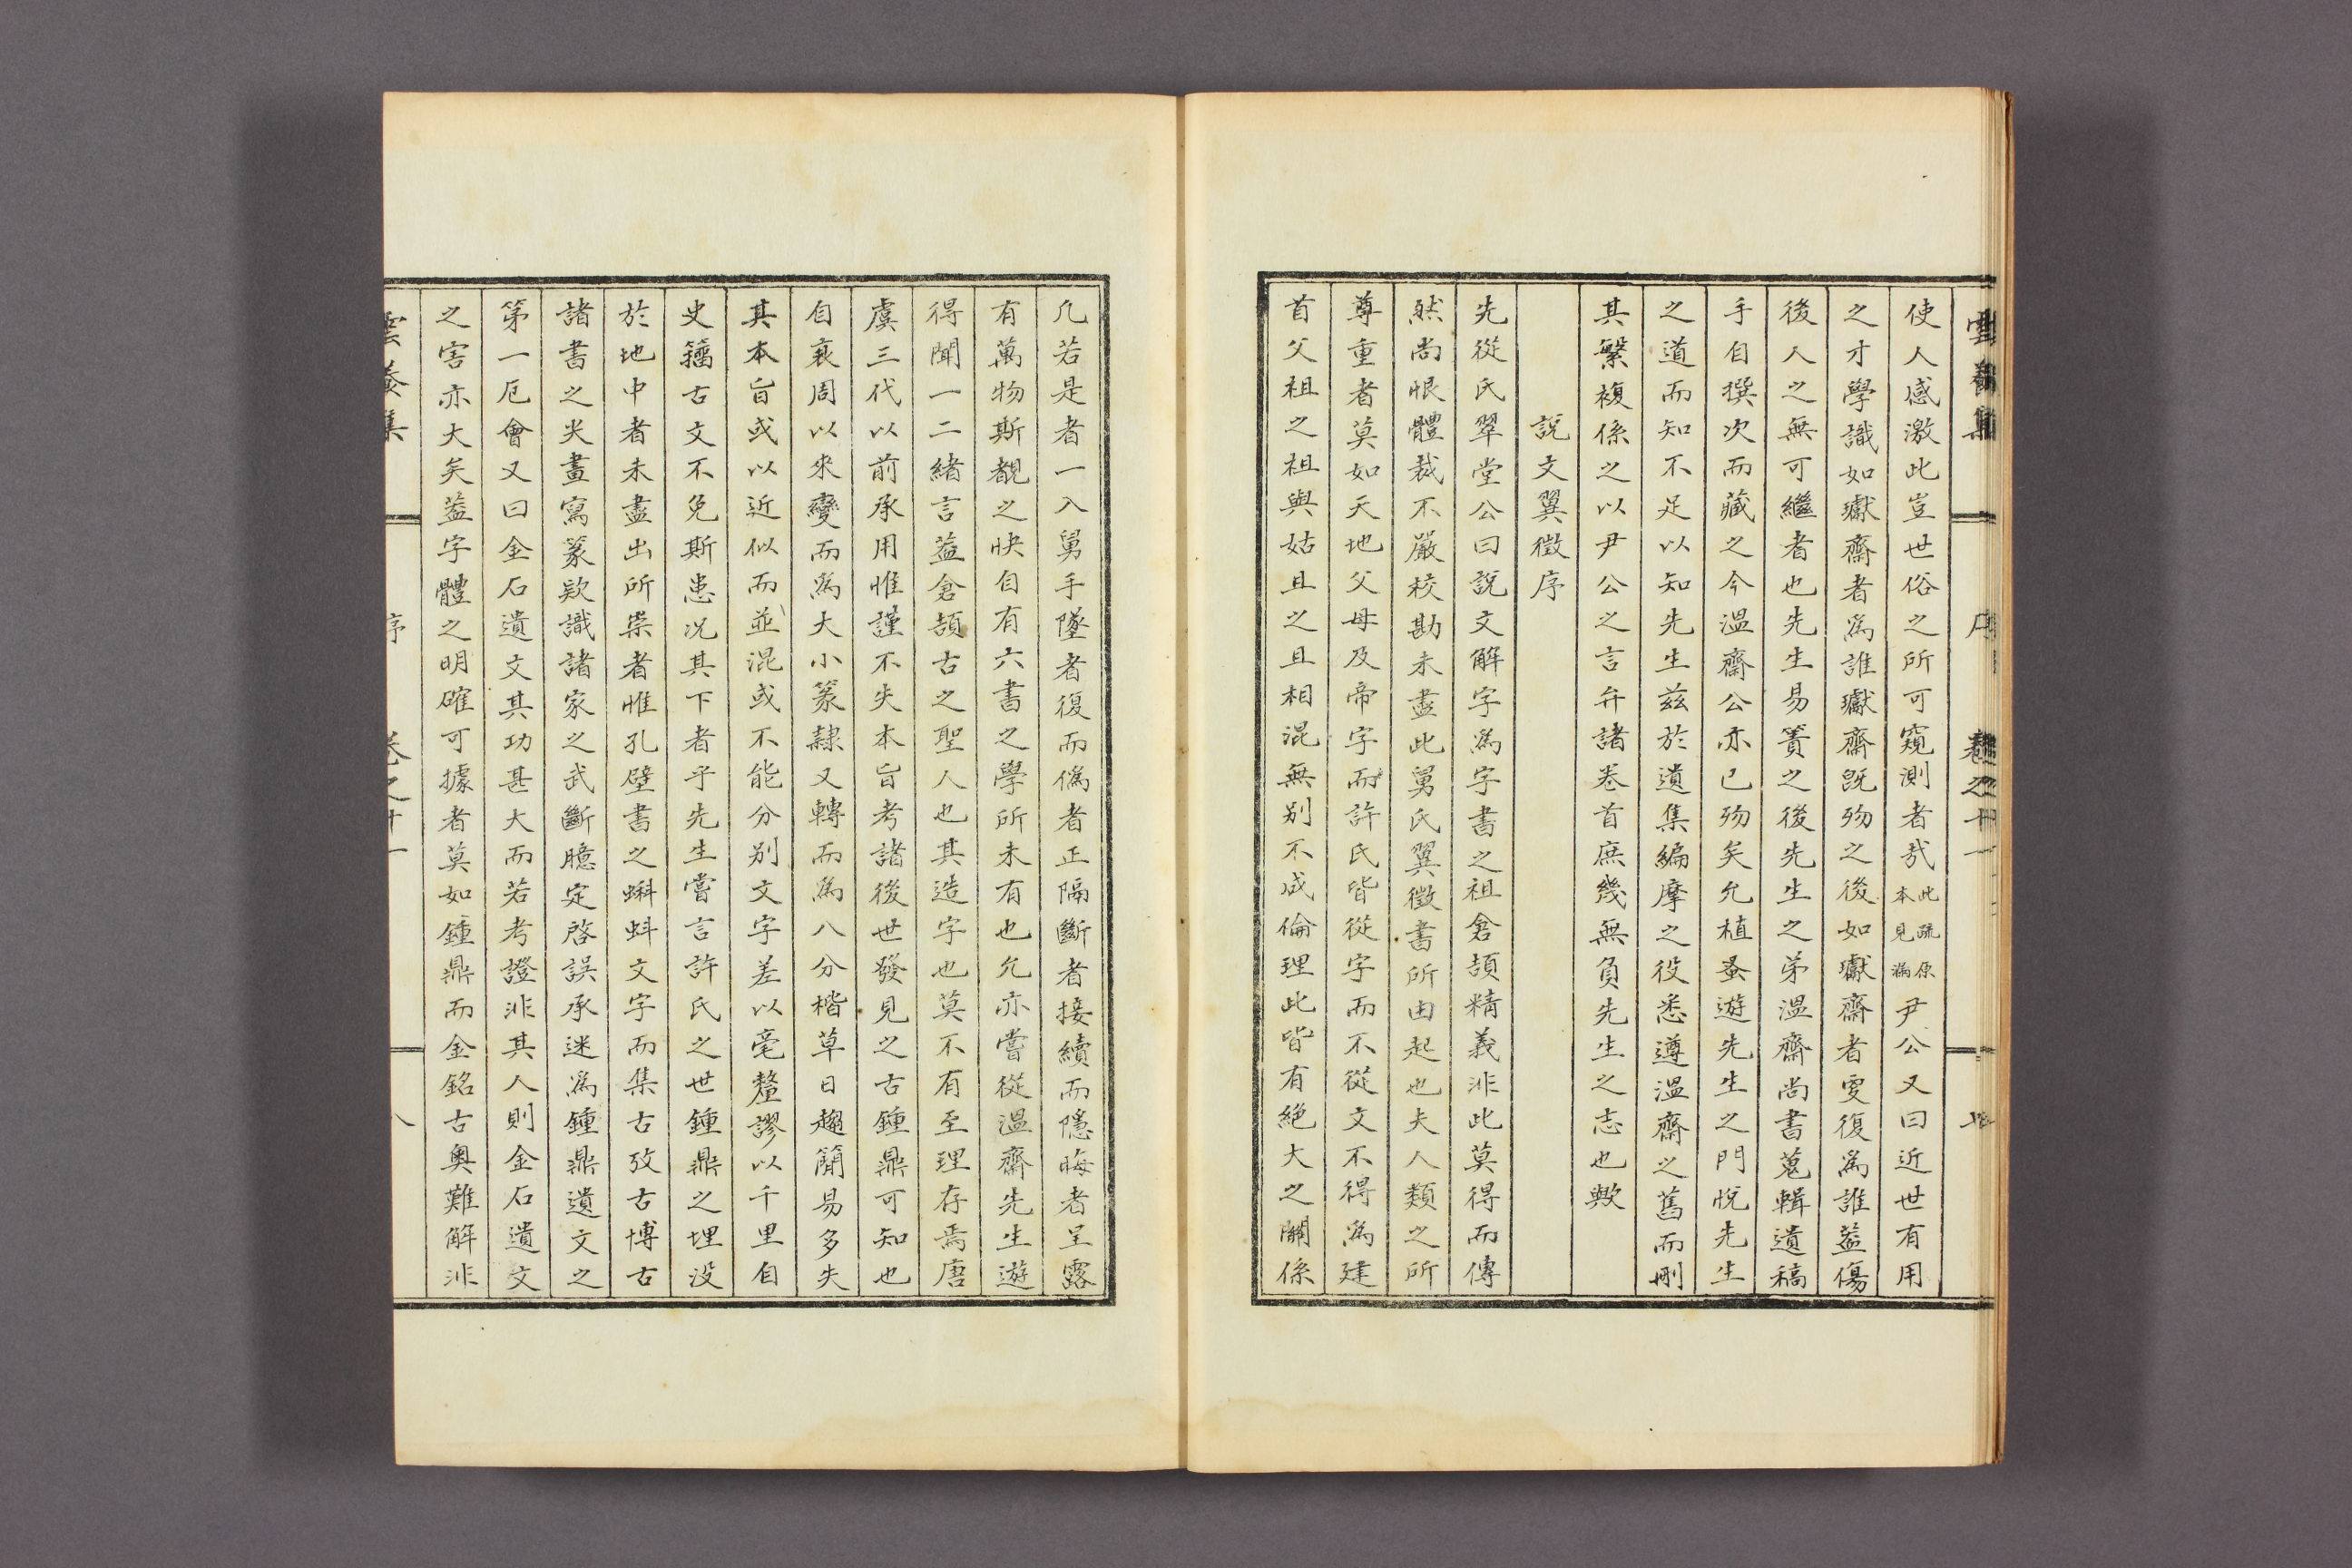 使人感激此豈世俗之所可窺測者哉此疏原本見漏尹公又曰近世有用
之才學識如瓛齋者爲誰瓛齋旣歿之後如瓛齋者更復爲誰葢傷
後人之無可繼者也先生易簀之後先生之弟溫齋尚書蒐輯遺稿
手自撰次而藏之今溫齋公亦已歿矣允植蚤遊先生之門悅先生
之道而知不足以知先生茲於遺集編摩之役悉遵溫齋之舊而刪
其繁複係之以尹公之言弁諸卷首庶幾無負先生之志也歟
說文翼徵序
先從氏翠堂公曰說文解字爲字書之祖倉頡精義非此莫得而傳
然尚恨體裁不嚴校勘未盡此舅氏翼徵書所由起也夫人類之所
尊重者莫如天地父母及帝字而許氏皆從字而不從文不得爲建
首父祖之祖與姑且之且相混無别不成倫理此皆有絶大之關係
凡若是者一入舅手墜者復而僞者正隔斷者接續而隱晦者呈露
有萬物斯覩之快自有六書之學所未有也允亦嘗從溫齋先生遊
得聞一二緖言葢倉頡古之聖人也其造字也莫不有至理存焉唐
虞三代以前承用惟謹不失本旨考諸後世發見之古鍾鼎可知也
自衰周以來變而爲大小篆隷又轉而爲八分楷草日趨簡易多失
其本旨或以近似而並混或不能分别文字差以毫釐謬以千里自
史籒古文不免斯患况其下者乎先生嘗言許氏之世鍾鼎之埋没
於地中者未盡出所崇者惟孔壁書之蝌蚪文字而集古攷古博古
諸書之失畫寫篆欵識諸家之武斷臆定啓誤承迷爲鍾鼎遺文之
第一厄會又曰金石遺文其功甚大而若考證非其人則金石遺文
之害亦大矣葢字體之明確可據者莫如鍾鼎而金銘古奥難解非
雲養集 序 卷之十一 八